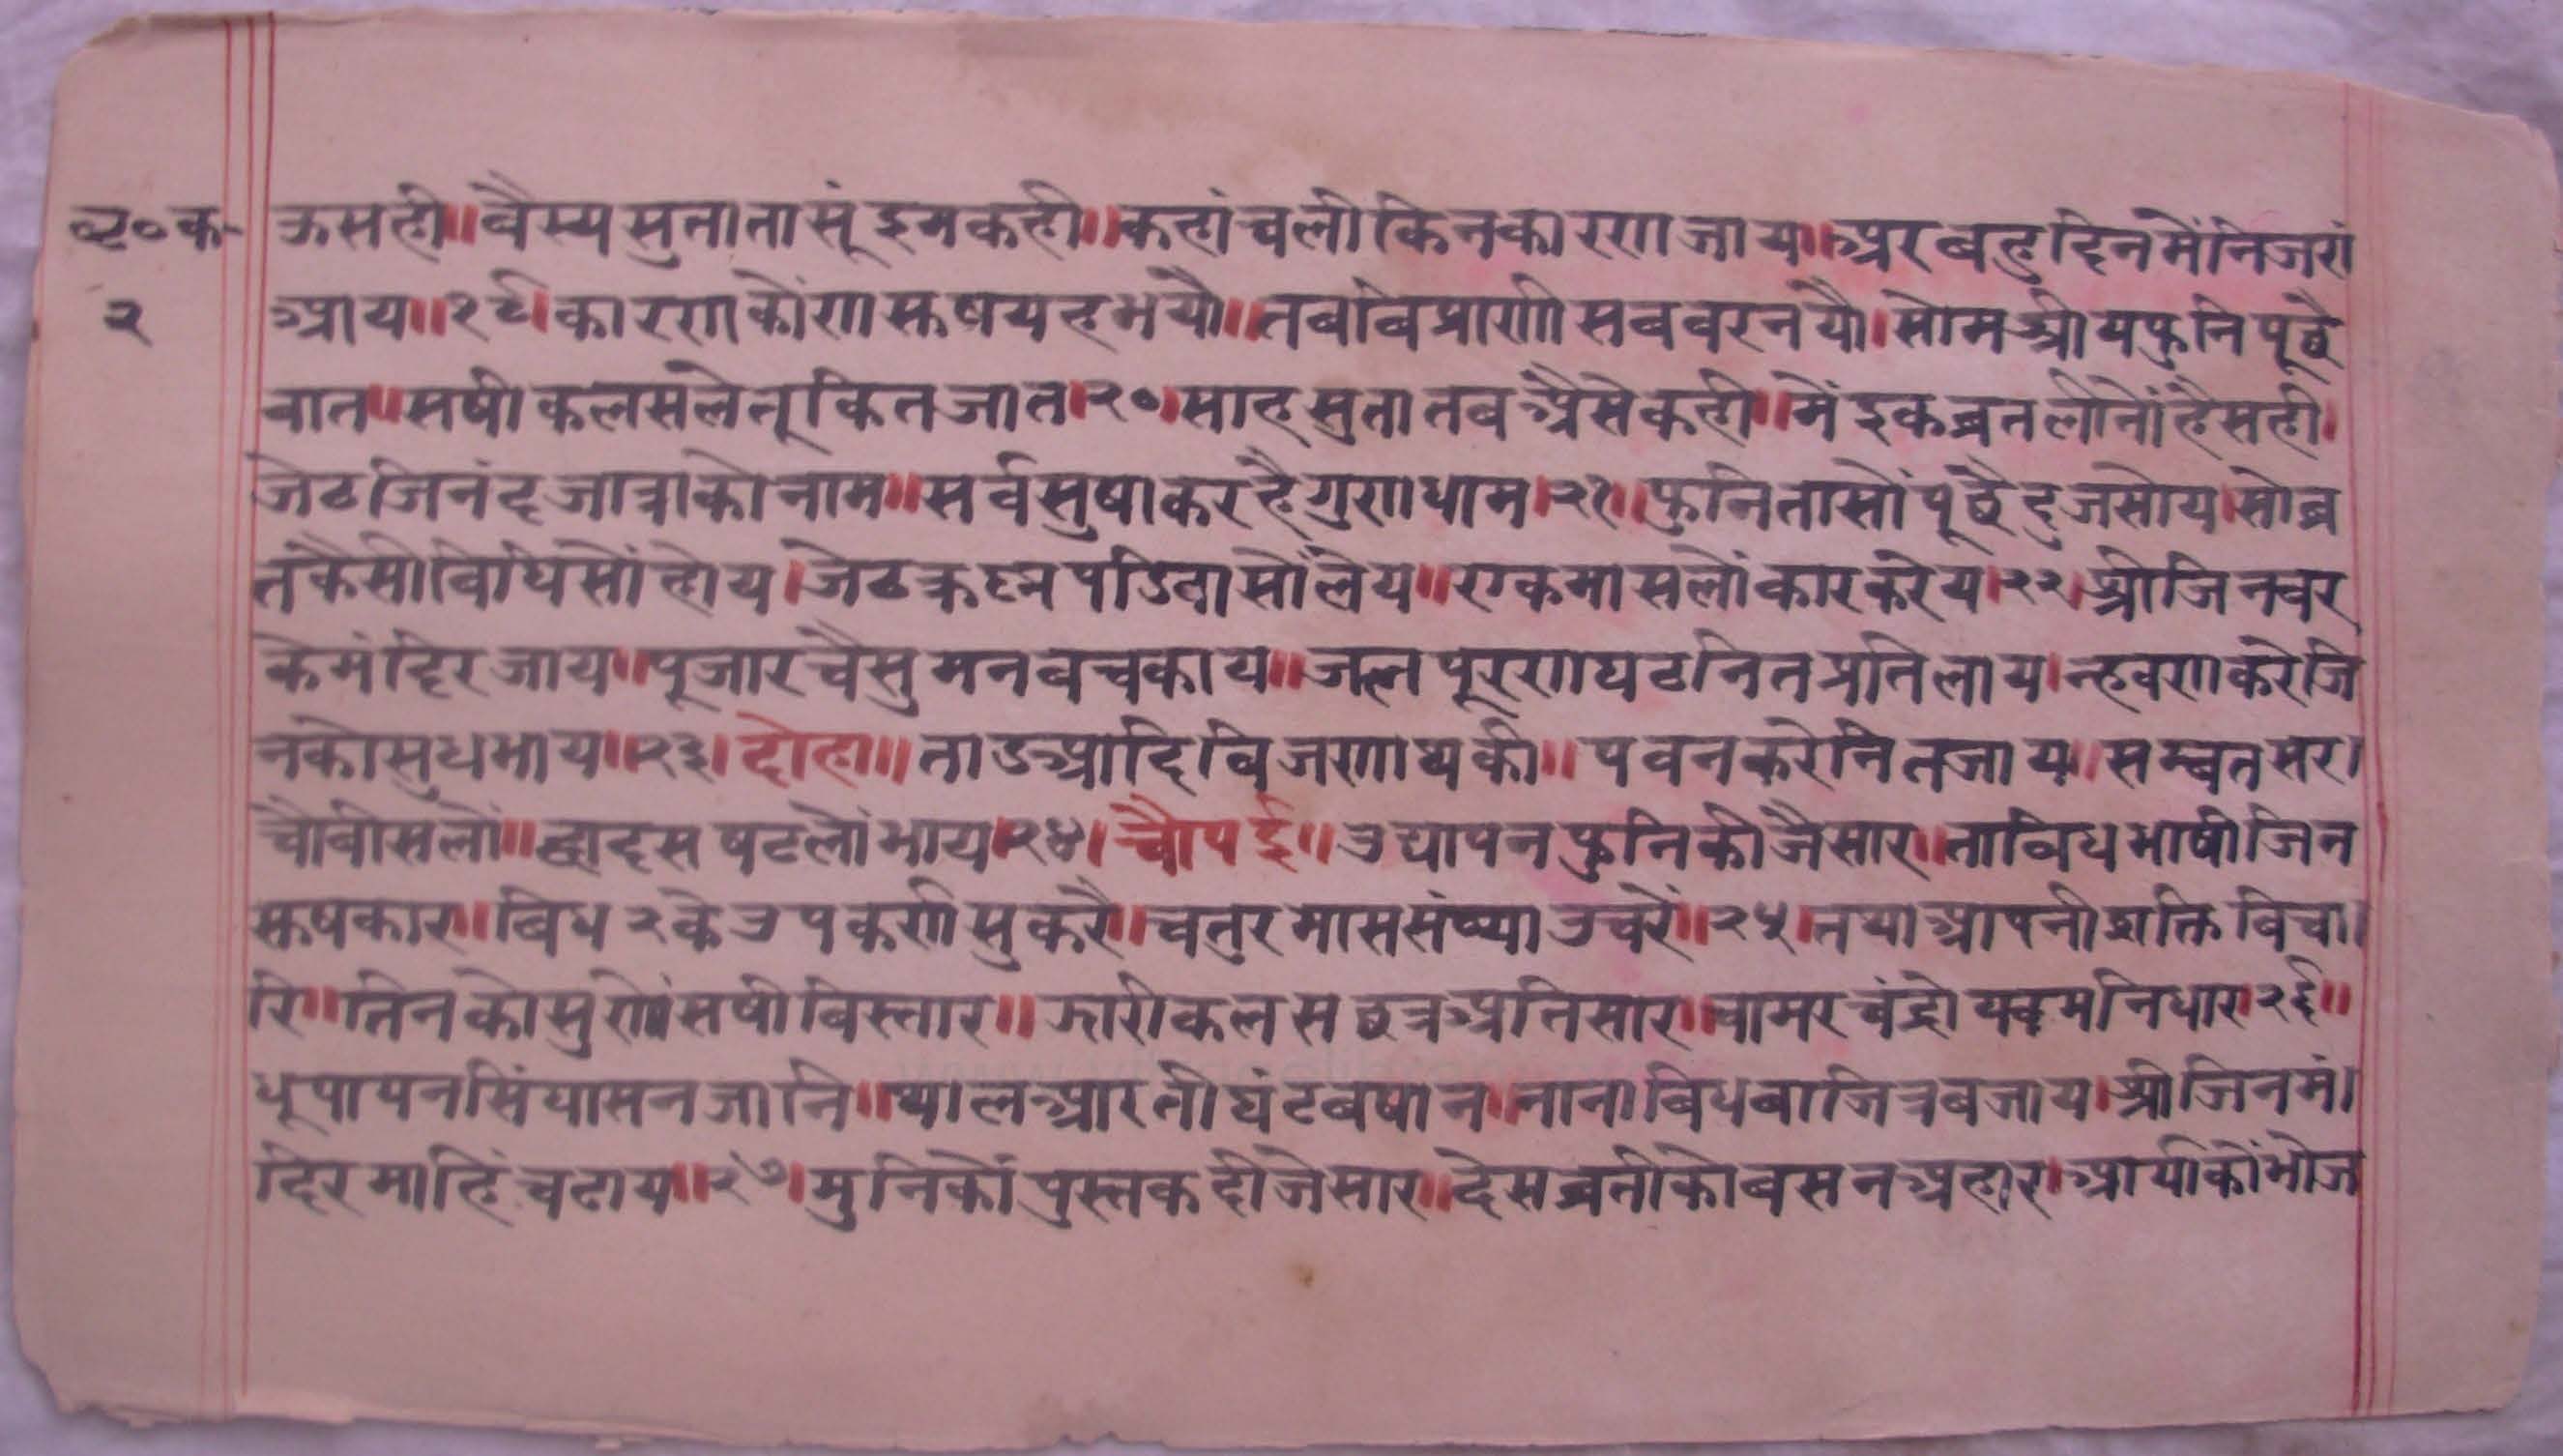 व्र॰क- ऊसही॥वैस्य सुता तासूं इम कही॥कहां चली किन कारण जाय॥अर बहु दिन में निजरां
२ आय॥१९।कारण कोंण रूषय ह भयौ॥तब विप्राणी सब बरनयौ।सोमश्रीय फुनि पूछै
बात॥सषी कलस ले तू कित जात।२०।साह सुता तब अैसे कही॥में इक ब्रत लीनों है सही।
जेठ जिनंद जात्रा को नाम॥सर्व सुषाकर है गुणधाम।२१॥फुनि तासों पूछै दुज सोय।सो ब्र
त कैसी विधि सों होय।जेठ क्रष्न पडिवा सों लेय॥एक मास लों कार करेय।२२।श्री जिनवर
के मंदिर जाय॥पूजा रचै सु मन बच काय॥जल पूरण घट नित प्रति लाय।न्हवण करे जि
न को सुध भाय॥२३।दोहा॥ताड आदि विजणा थकी॥पवन करे नित जाय॥सम्वतसर।
चौवीस लों॥द्वादस षट लों भाय।२४।चौपई॥उद्यापन फुनि कीजै सार॥ता विध भाषी जिन
रूषकार॥बिध २ के उपकर्ण सु करै।चतुर मास संष्या उचरें॥२५।तथा आपनी शक्ति बिचा।
रि॥तिन को सुणों सषी बिस्तार॥झारी कलस छत्र अति सार॥चामर चंद्रोयक मनिधार।२६॥
धूपायन सिंघासन जानि॥थाल आरती घंट बषान॥नाना बिध बाजित्र बजाय।श्री जिन मं।
दिर माहिं चढाय॥२७।मुनि कों पुस्तक दीजे सार॥देसब्रती को बसन अहार।आर्या कों भोज